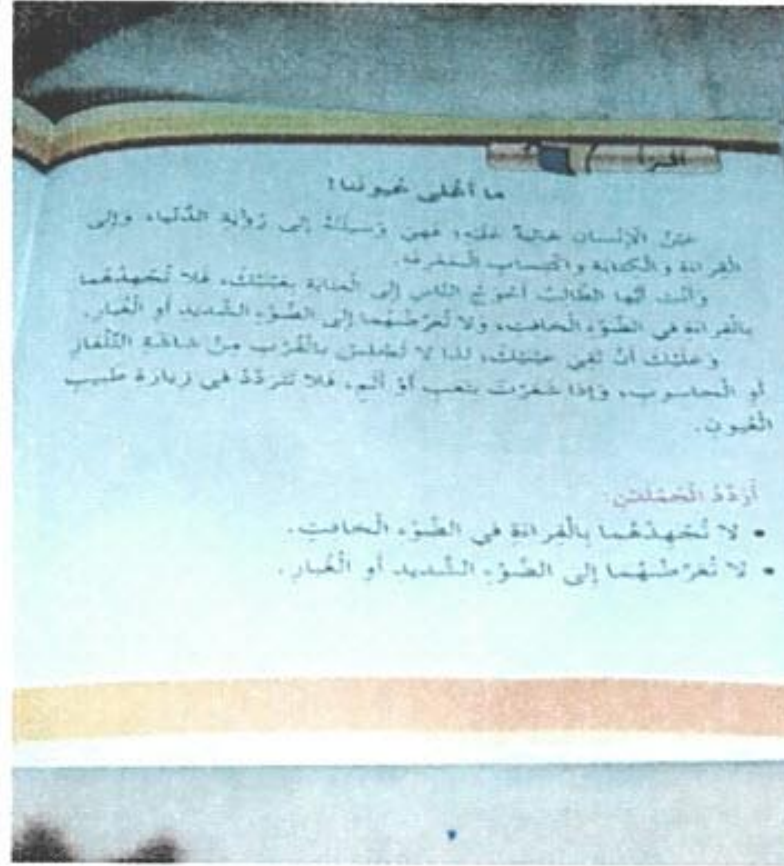 أقرأ
ما أغلى عيوننا!
عين الإنسان غالية عليه، فهي وسيلته إلى رؤية الدنيا، وإلى
القراءة والكتابة واكتساب المعرفة.
وأنت أيها الطالب أحوج الناس إلى العناية بعينيك، فلا تجهدهما
بالقراءة في الضوء الخافت، ولا تعرضهما إلى الضوء الشديد أو الغبار.
وعليك أن تقي عينيك، لذا لا تجلس بالقرب من شاشة التلفاز
أو الحاسوب، وإذا شعرت بتعب أو ألم، فلا تتردد في زيارة طبيب
العيون.
أردد الجملتين:
• لا تجهدهما بالقراءة في الضوء الخافت.
• لا تعرضهما إلى الضوء الشديد أو الغبار.